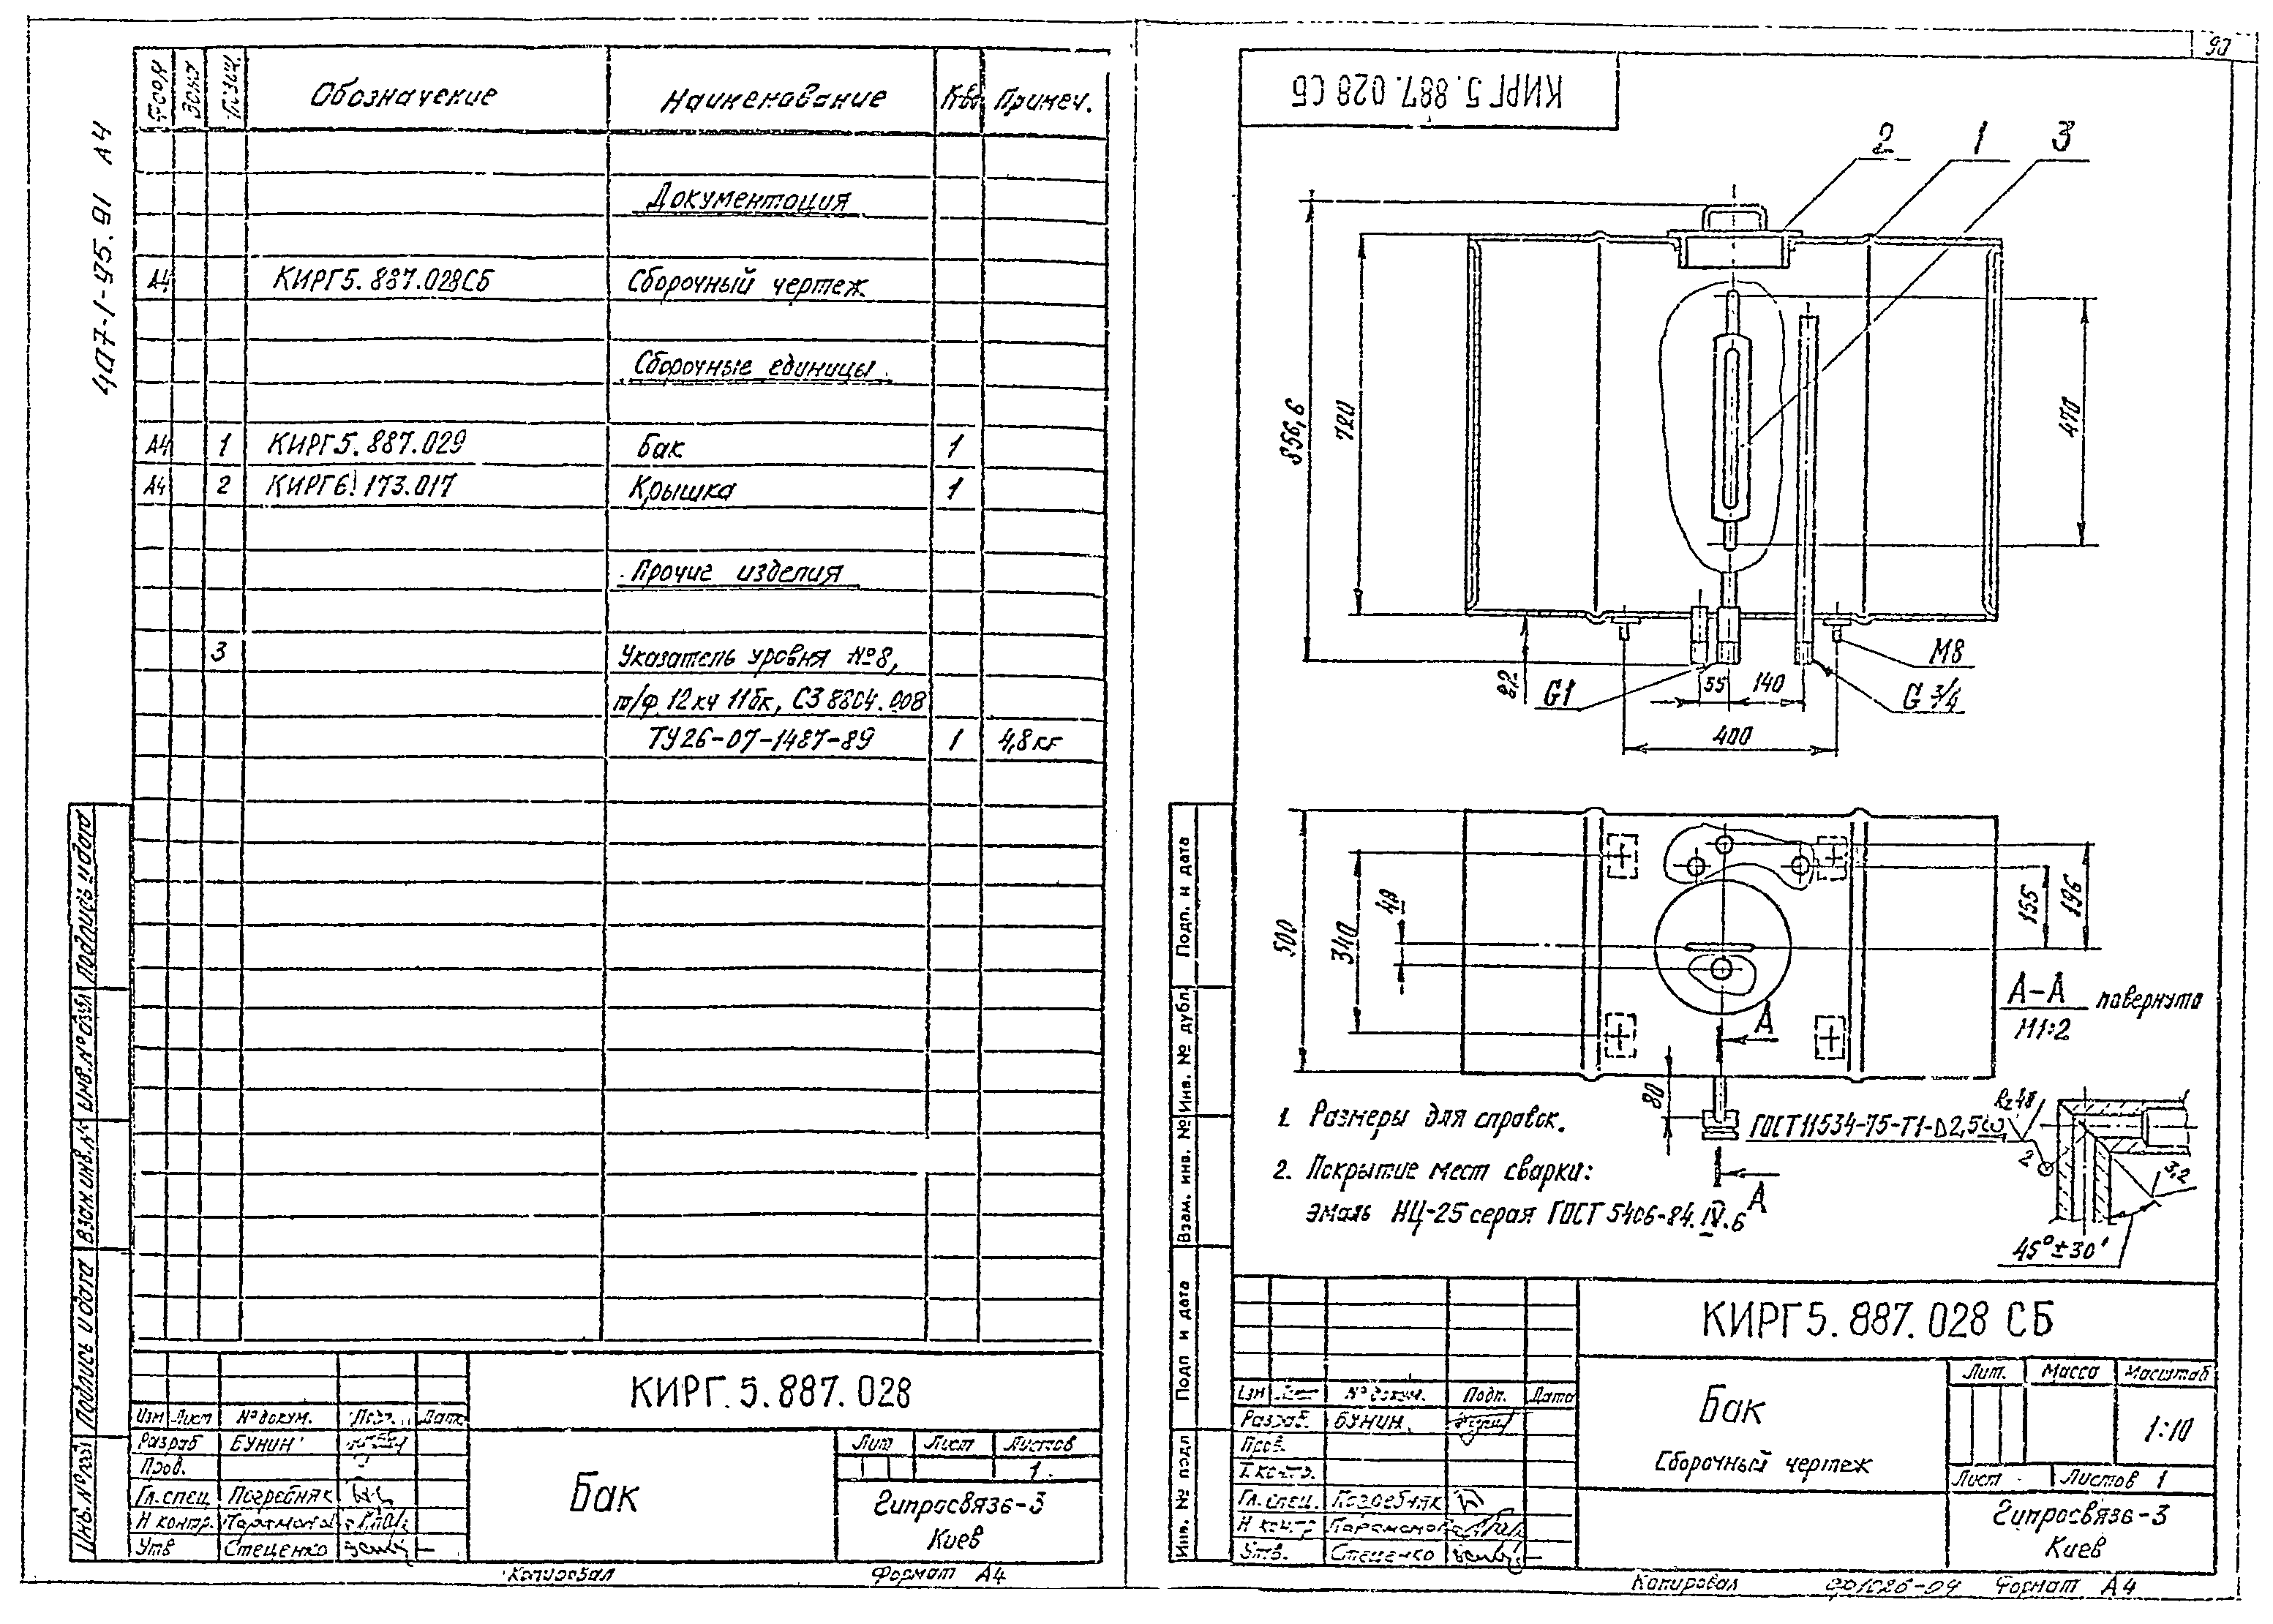 407-1-95.91 А4
Форм Зона Позиц. Обозначение Наименование Кво Примеч.
Документация
А4 КИРГ5.887.028СБ Сборочный чертеж
Сборочные единицы
А4 1 КИРГ5.887.029 Бак 1
А4 2 КИРГ6.173.017 Крышка 1
Прочие изделия
3 Указатель уровня №8,
т/ф 12кч 11бк, СЗ 8804.008
ТУ26-07-1487-89 1 4,8кг
Подпись и дата
Инв.№ дубл
Взам.инв.№
Подпись и дата
Инв.№ подл
КИРГ.5.887.028
Изм Лист № докум. Подп. Дата
Разраб БУНИН
Пров.
Гл.спец Погребняк
Н контр.
Утв Стеценко
Бак
Лит Лист Листов
1
Гипросвязь-3
Киев
Копировал Формат А4
90
КИРГ5.887.028 СБ
2 1 3
856,6
720
470
82
G1
55
140
М8
G 3/4
400
500
340
40
155
196
80
А
А
А-А повернуто
М1:2
ГОСТ11534-75-Т1-⊿2,5
2
3,2
45°±30'
1. Размеры для справок.
2. Покрытие мест сварки:
эмаль НЦ-25 серая ГОСТ 5406-84.IV.6
Подп. и дата
Инв. № дубл.
Взам. инв. №
Подп и дата
Инв. № подл
КИРГ5.887.028 СБ
Изм Лист № докум. Подп. Дата
Разраб. БУНИН
Пров.
Т.контр.
Гл.спец. Погребняк
Н контр
Утв. Стеценко
Бак
Сборочный чертеж
Лит. Масса Масштаб
1:10
Лист Листов 1
Гипросвязь-3
Киев
Копировал Формат А4